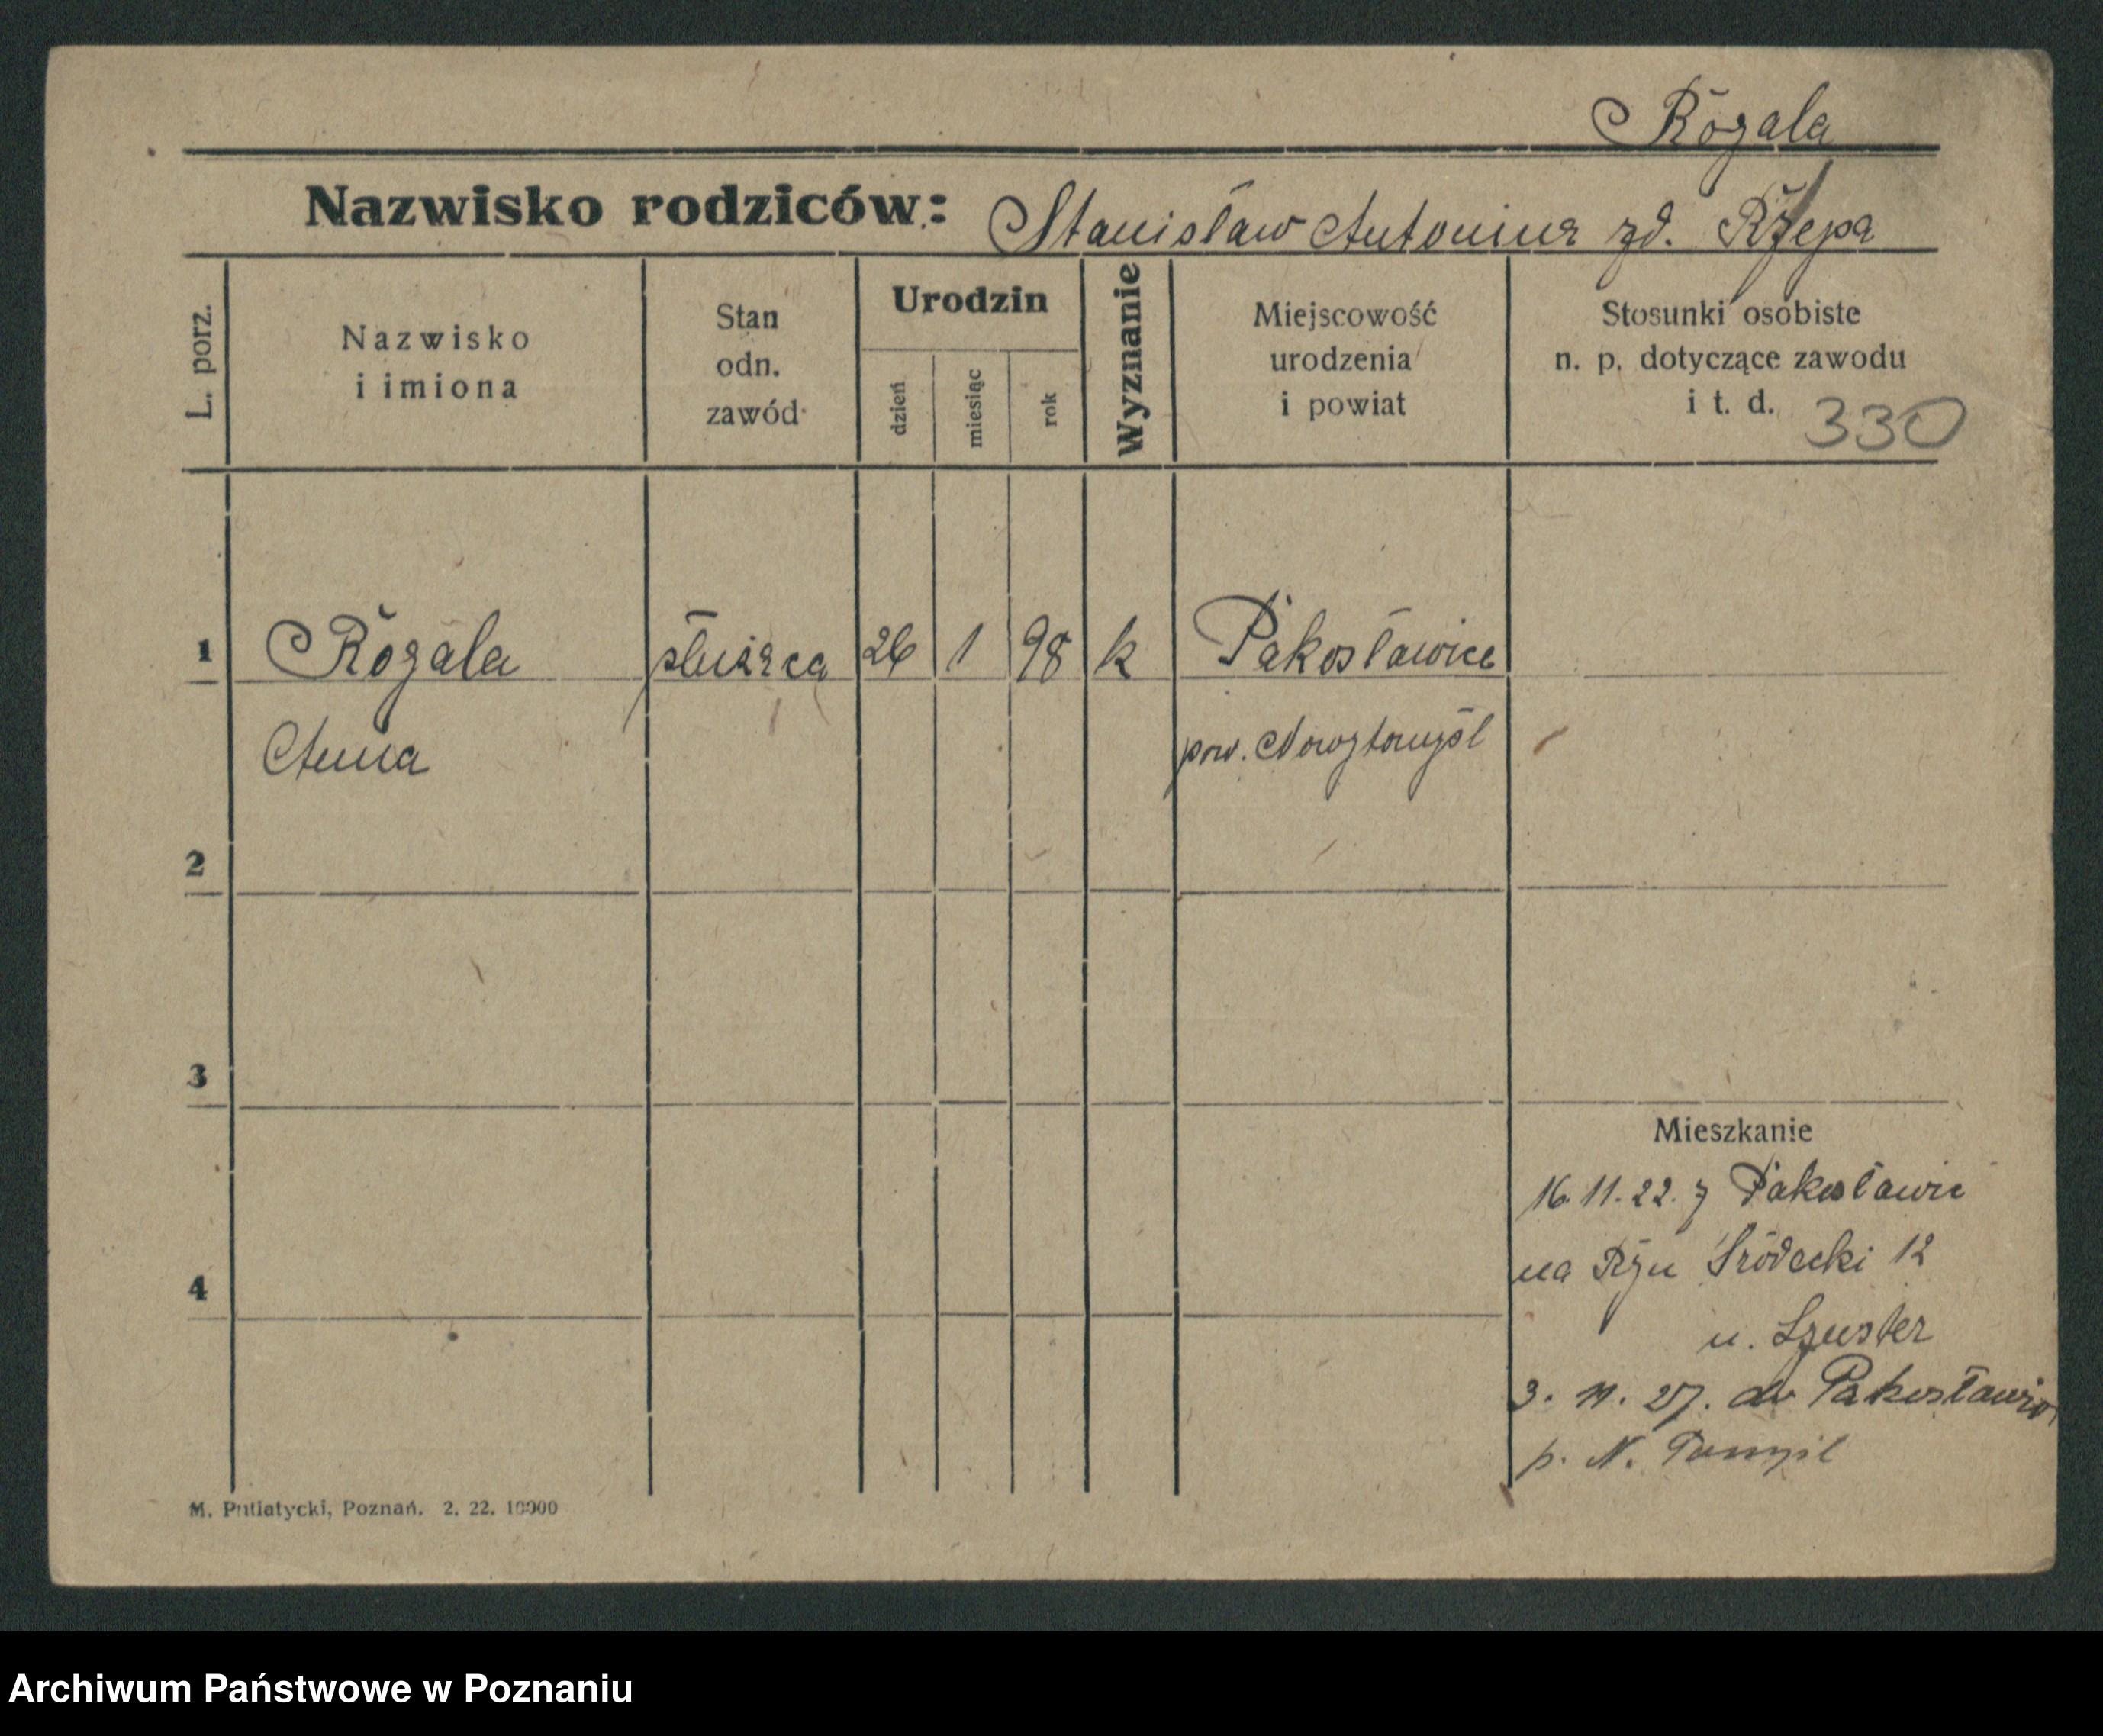 Rogala
Nazwisko rodziców: Stanisław Antonina zd. Rzepa
L. porz.
Nazwisko
i imiona
Stan
odn.
zawód
Urodzin
dzień
miesiąc
rok
Wyznanie
Miejscowość
urodzenia
i powiat
Stosunki osobiste
n. p. dotyczące zawodu
i t. d. 330
1 Rogala służąca 26 1 98 k Pakosławice
Anna pow. Nowytomyśl
2
3
Mieszkanie
16 11. 22. z Pakosławic
na Ryn Śródecki 12
4
u. Szuster
3. 11. 27. do Pakosławic
p. N. Tomyśl
M. Putiatycki, Poznań. 2. 22. 10000
Archiwum Państwowe w Poznaniu